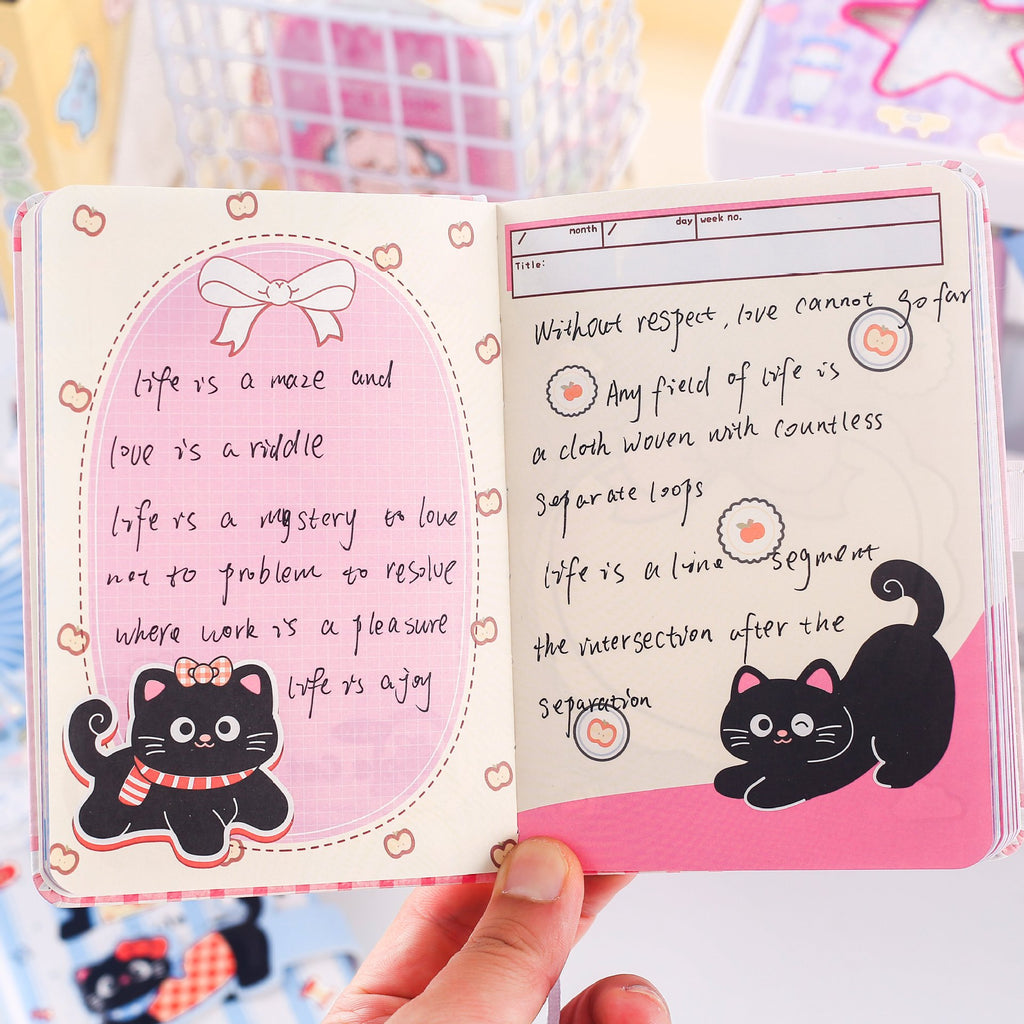 life is a maze and
love is a riddle
life is a mystery to love
not to problem to resolve
where work is a pleasure
life is a joy
/ month / day week no.
Title:
Without respect, love cannot go far
Any field of life is
a cloth woven with countless
separate loops
life is a line segment
the intersection after the
separation